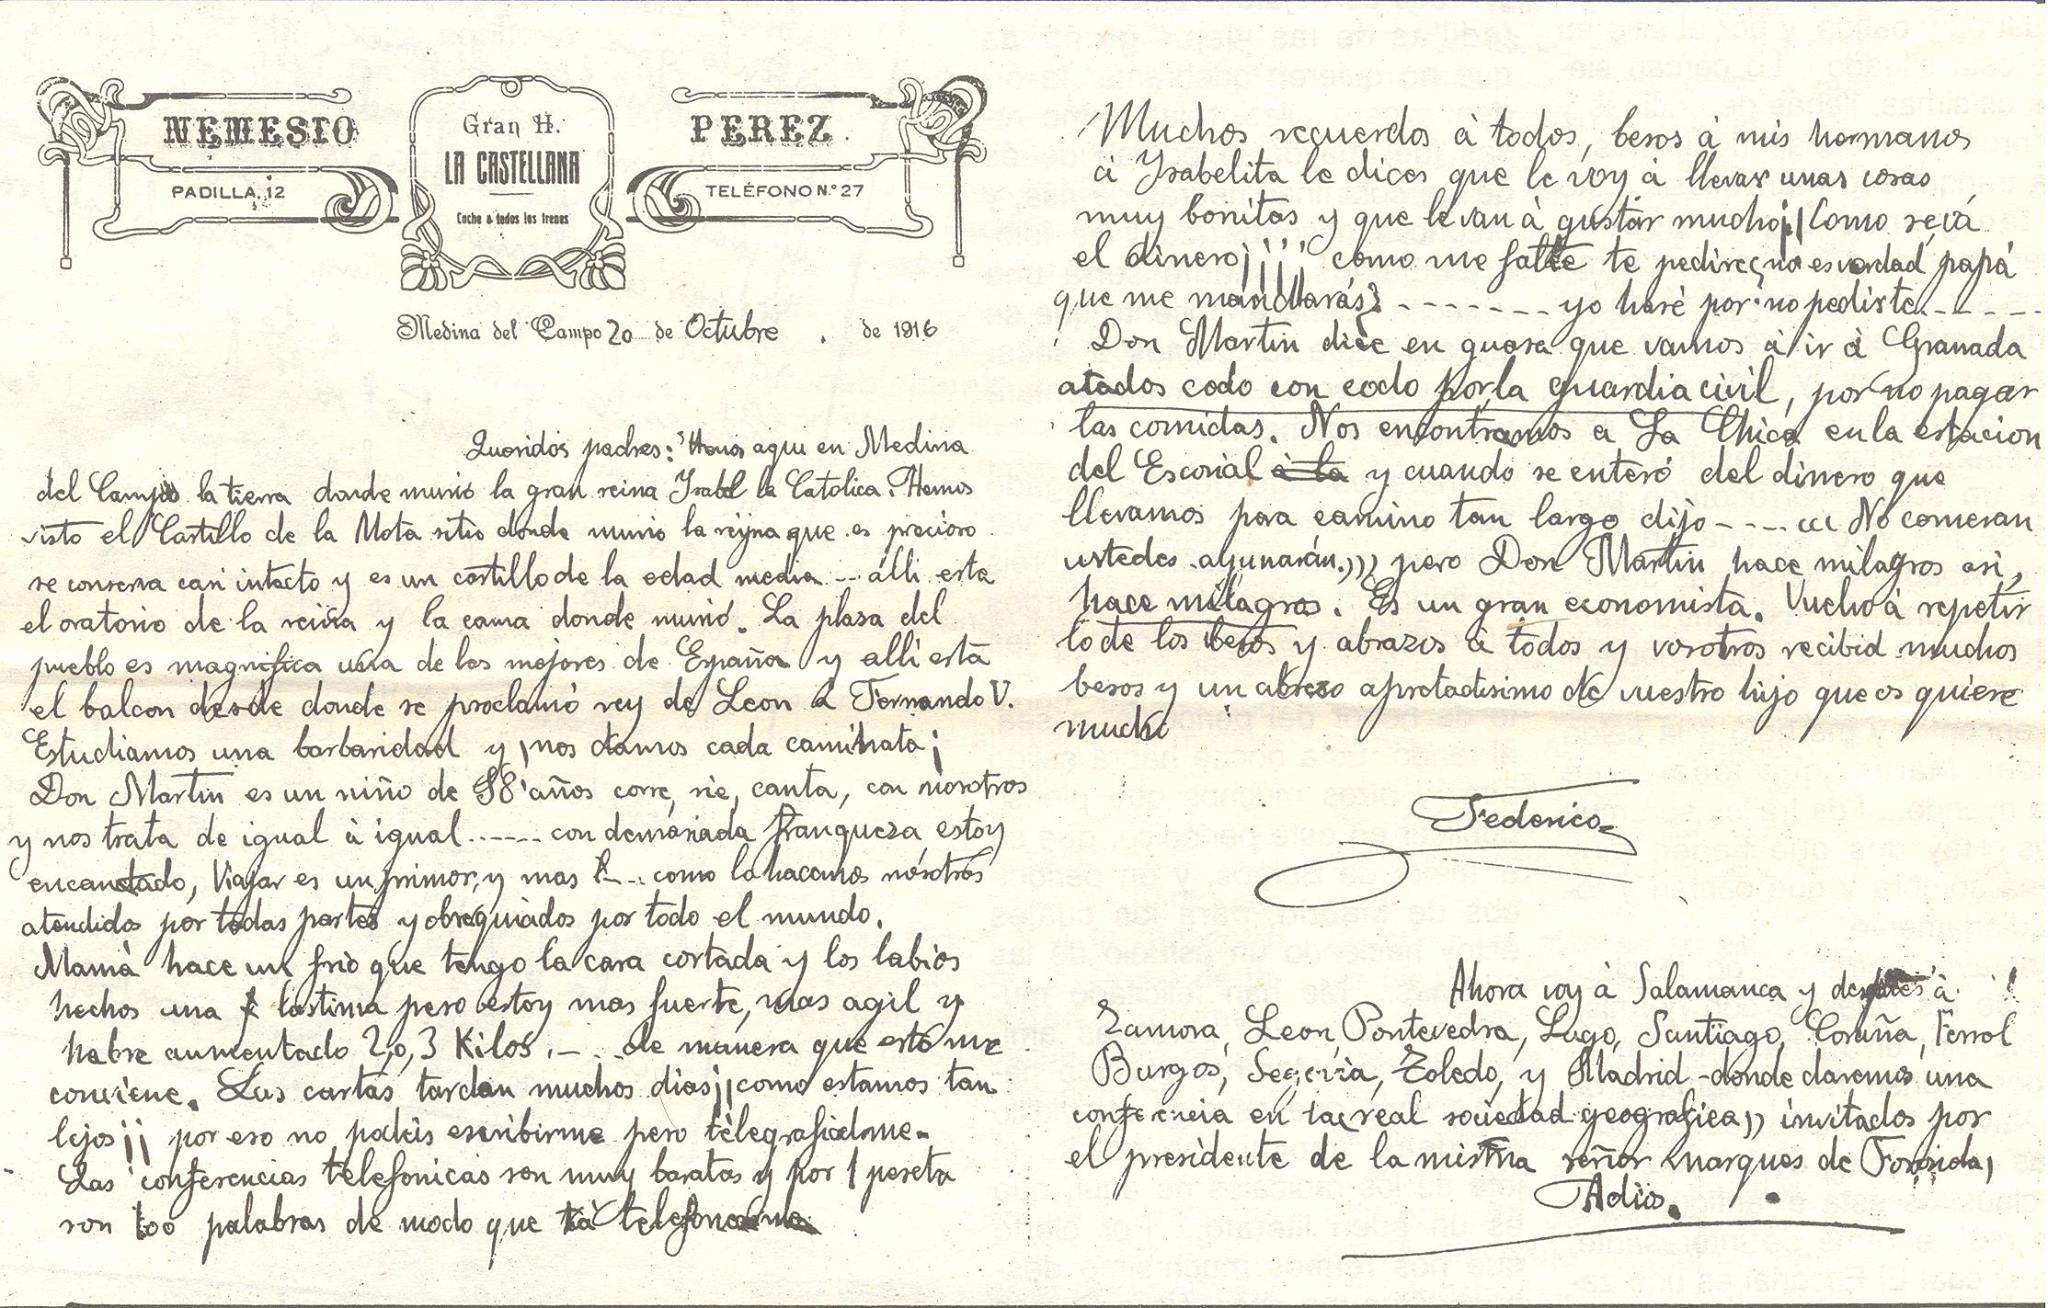 NEMESIO
PADILLA, 12
Gran H.
LA CASTELLANA
Coche a todos los trenes
PEREZ
TELÉFONO N.º 27
Medina del Campo 20 de Octubre de 1916
Queridos padres: Henos aqui en Medina
del Campo la tierra donde murió la gran reina Ysabel la Catolica. Hemos
visto el Castillo de la Mota sitio donde murio la reyna que es precioso
se conserva casi intacto y es un castillo de la edad media -- álli esta
el oratorio de la reina y la cama donde murió. La plasa del
pueblo es magnifica una de las mejores de España y alli está
el balcon desde donde se proclamó rey de Leon a Fernando V.
Estudiamos una barbaridad y ¡nos damos cada caminata¡
Don Martin es un niño de 58 años corre, rie, canta, con nosotros
y nos trata de igual à igual ...... con demasiada franqueza, estoy
encantado, Viajar es un primor, y mas como lo hacemos nosotros
atendidos por todas partes y obsequiados por todo el mundo.
Mamà hace un frio que tengo la cara cortada y los labios
hechos una lastima pero estoy mas fuerte, mas agil y
habre aumentado 2, ó, 3 Kilos. -- de manera que esto me
conviene. Las cartas tardan muchos dias ¡¡como estamos tan
lejos¡¡ por eso no podeis escribirme pero telegrafiadme.
Las conferencias telefonicas son muy baratas y por 1 peseta
son 100 palabras de modo que
Muchos recuerdos à todos, besos à mis hermanos
à Ysabelita le dices que le voy à llevar unas cosas
muy bonitas y que le van à gustar mucho ¡¡Como será
el dinero¡¡¡¡¡ como me falte te pediré ¿no es verdad papá
que me mandarás? ------- yo haré por no pedirte -----
Don Martin dice en guasa que vamos à ir à Granada
atados codo con codo por la guardia civil, por no pagar
las comidas. Nos encontramos a La Chica en la estacion
del Escorial à la y cuando se enteró del dinero que
llevamos para camino tan largo dijo ---- ((( No comeran
ustedes ayunarán.))) pero Don Martin hace milagros asi,
hace milagros. Es un gran economista. Vuelvo à repetir
lo de los besos y abrazos à todos y vosotros recibid muchos
besos y un abrazo apretadisimo de vuestro hijo que os quiere
mucho
Federico
Ahora voy à Salamanca y despues à
Zamora, Leon, Pontevedra, Lugo, Santiago, Coruña, Ferrol
Burgos, Segovia, Toledo, y Madrid -donde daremos una
conferencia en la real sociedad geografica)) invitados por
el presidente de la misma señor marques de
Adios.